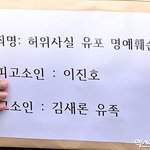 죄명: 허위사실 유포 명예훼손
피고소인 - 이진호
고소인 - 김새론 유족